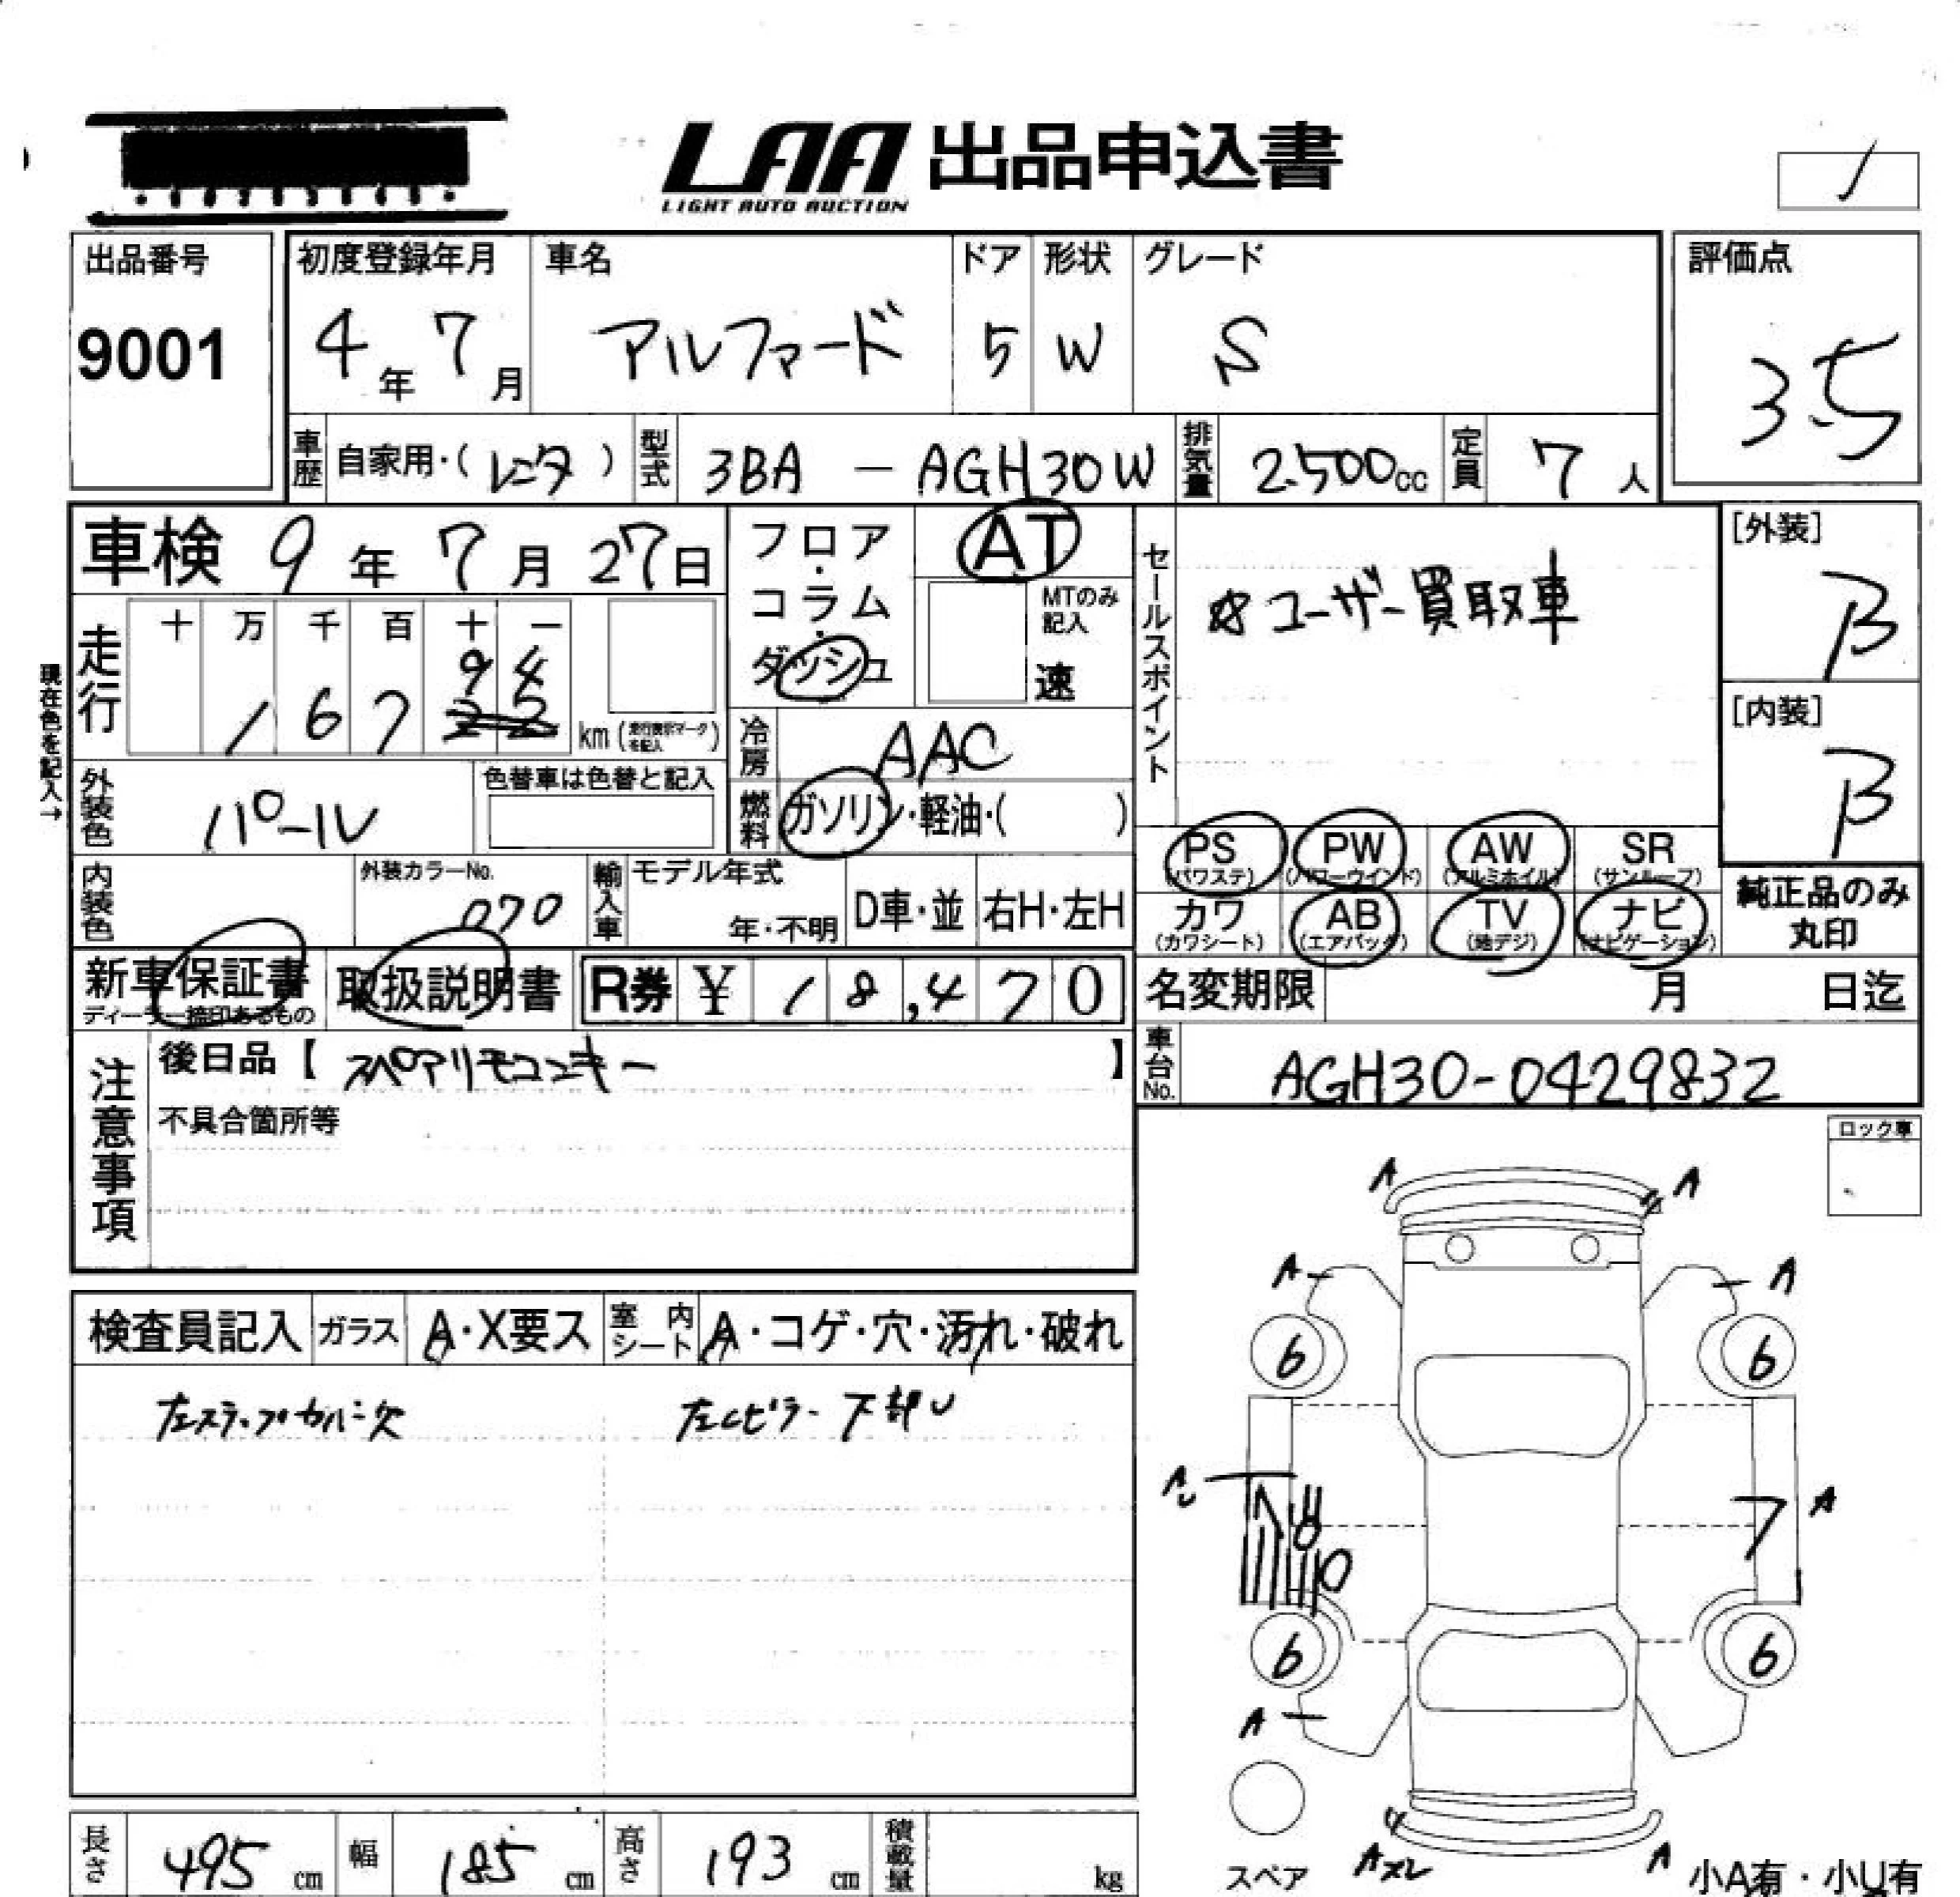 LAA 出品申込書
LIGHT AUTO AUCTION
出品番号
9001
初度登録年月
4年 7月
車名
アルファード
ドア
5
形状
W
グレード
S
評価点
3.5
車歴 自家用・(レンタ)
型式 3BA - AGH30W
排気量 2.500cc
定員 7人
車検 9年 7月 27日
走行
十 万 千 百 十 一
94
1 6 7 2
km (走行表示マークを記入)
現在色を記入→
フロア・コラム・ダッシュ
AT
MTのみ記入
速
冷房 AAC
燃料 ガソリン・軽油・( )
外装色 パール
色替車は色替と記入
内装色
外装カラーNo.
070
輸入車
モデル年式
年・不明
D車・並
右H・左H
セールスポイント
☆ユーザー買取車
[外装]
B
[内装]
B
PS (パワステ)
PW (パワーウインド)
AW (アルミホイル)
SR (サンルーフ)
カワ (カワシート)
AB (エアバック)
TV (地デジ)
ナビ (ナビゲーション)
純正品のみ
丸印
新車保証書
ディーラー捺印あるもの
取扱説明書
R券 ¥ 18,470
名変期限 月 日迄
注意事項
後日品【 スペアリモコンキー 】
不具合箇所等
車台No. AGH30-0429832
ロック車
検査員記入
ガラス A・X要ス
室内シート A・コゲ・穴・汚れ・破れ
左ステップカバー欠
左Cピラー下部U
A A
A A
6 6
A
A
6 6
A
A
スペア
小A有・小U有
長さ 495 cm
幅 185 cm
高さ 193 cm
積載量 kg